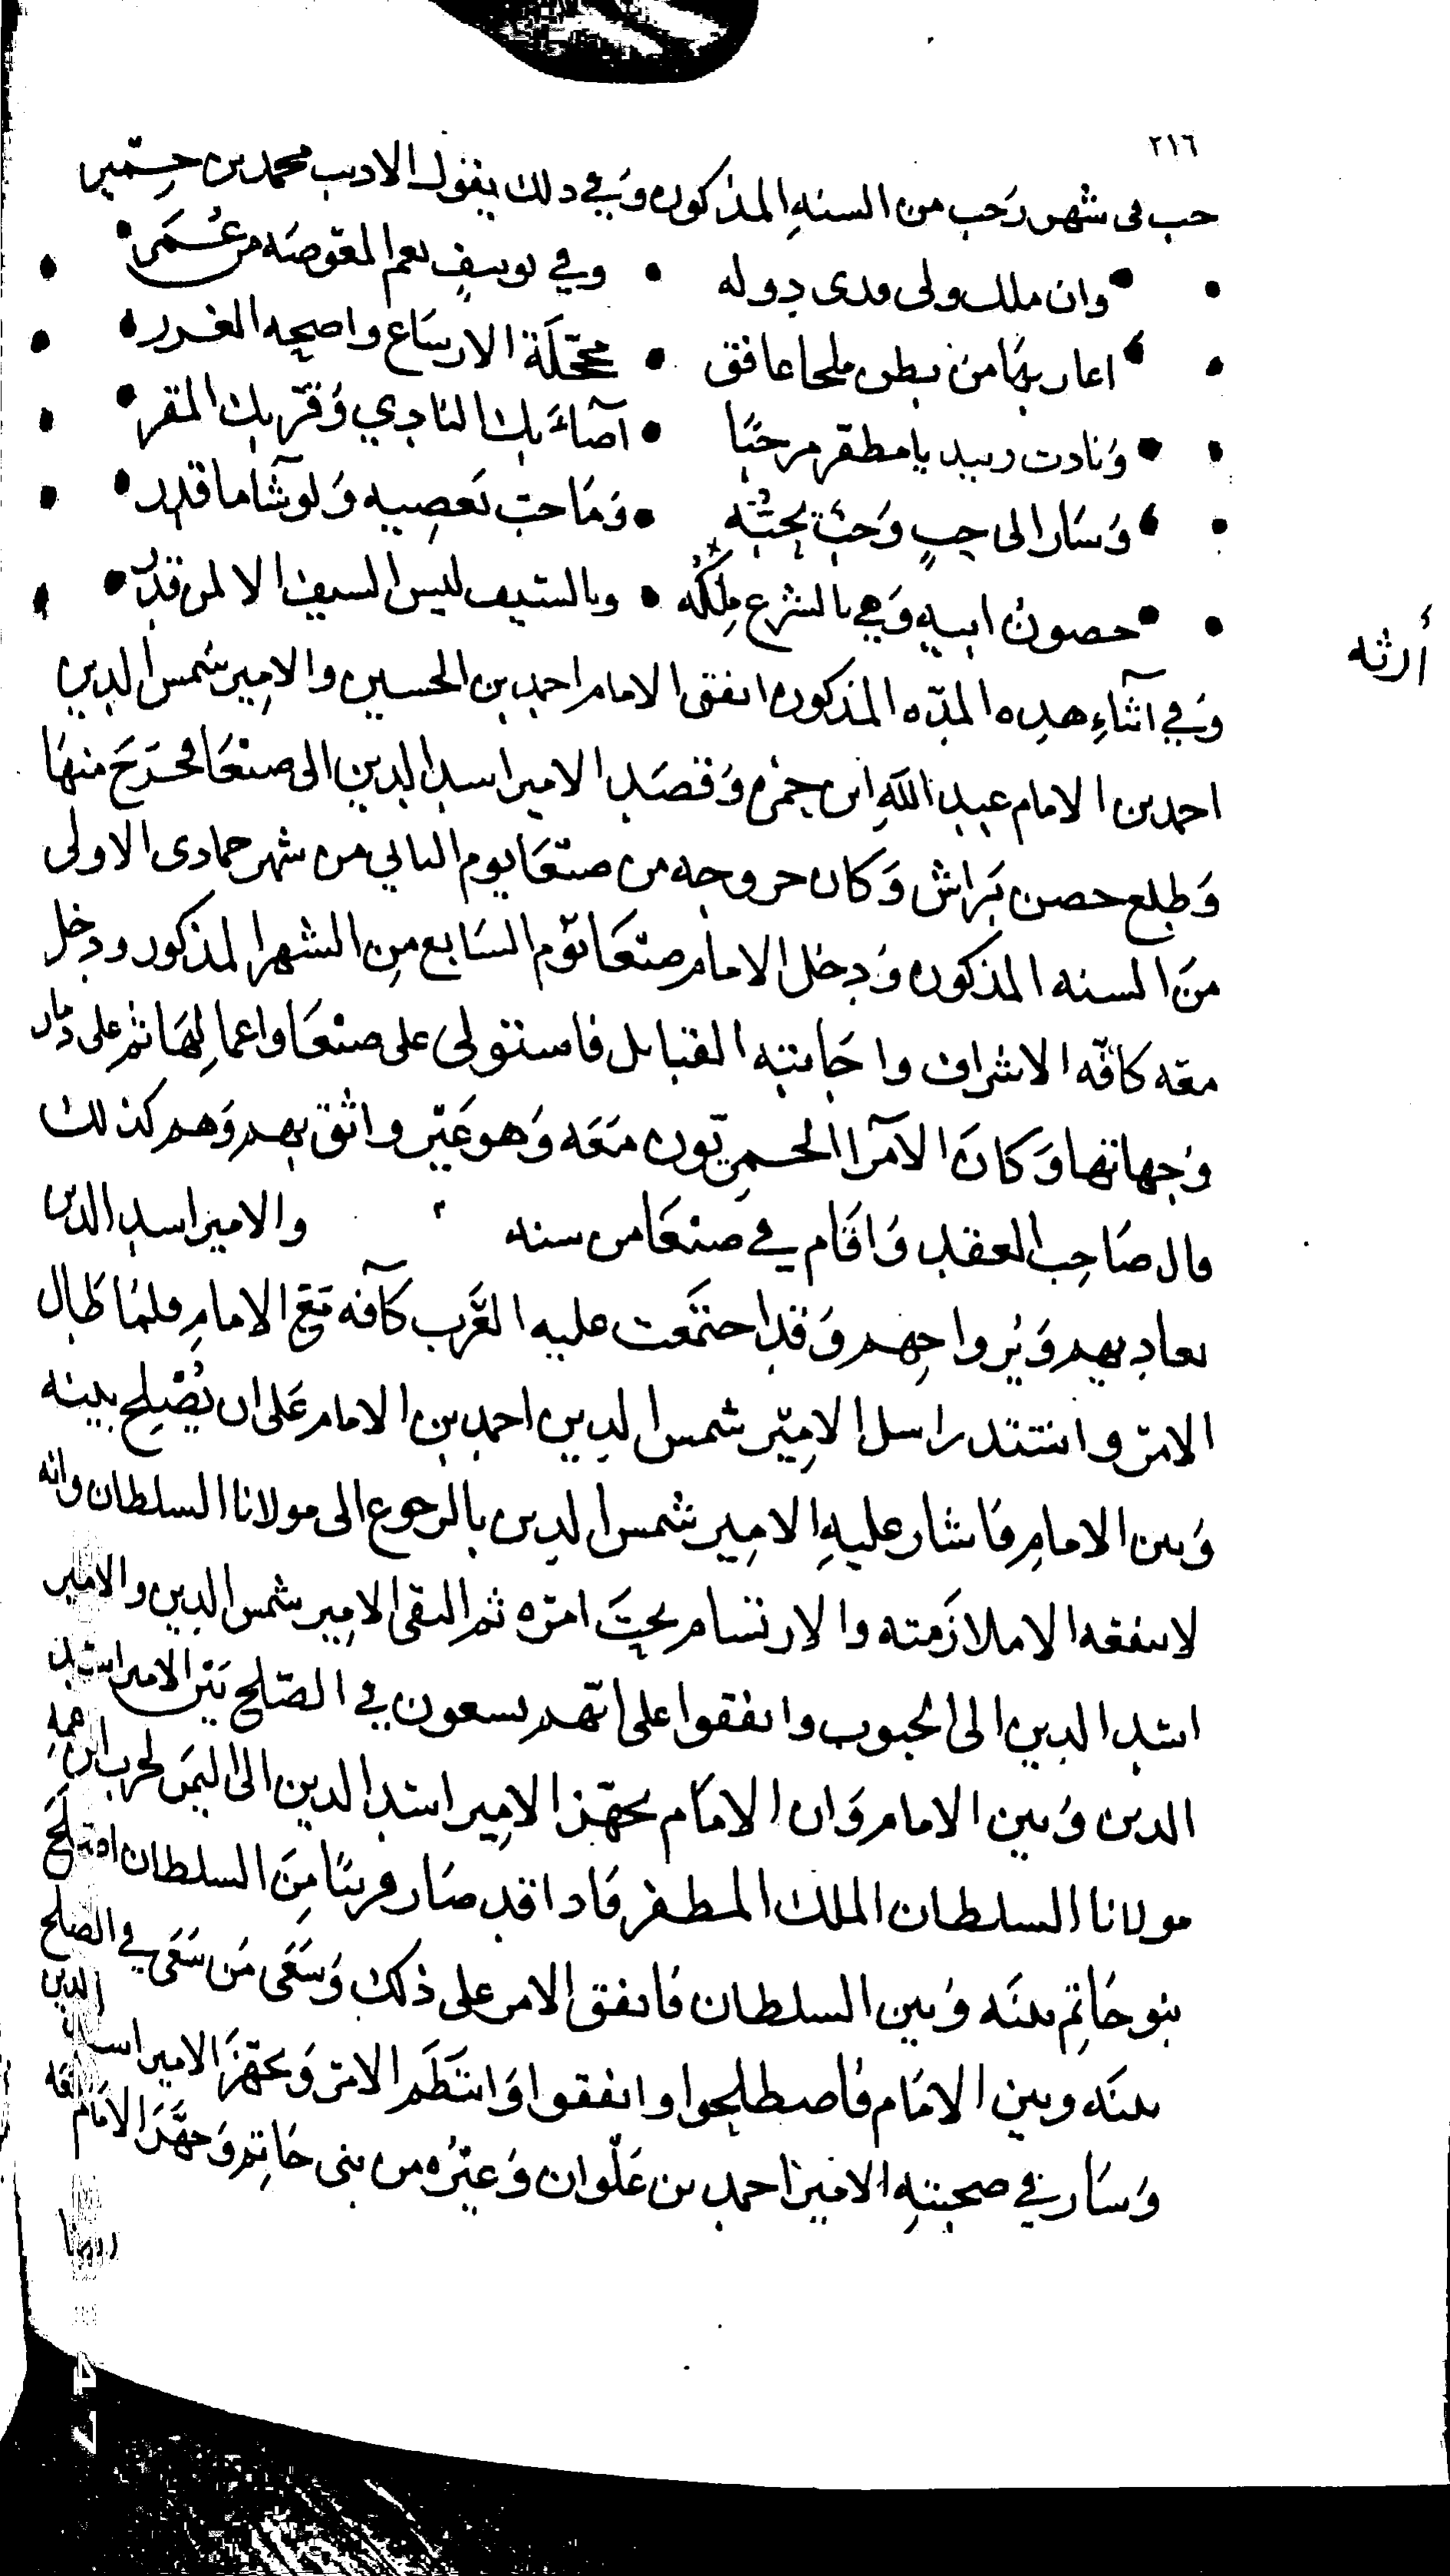 ٢١٦
حب فى شهر رجب من السنهِ المذكوره وَفي ذلك يقول الاديب محمد بن حِمّير
وان ملك ولى فدى دوله • وفي يوسفٍ نعم المعوضه من عُمَر
اغار بهَا من بطن ملحا عافق • محجّلَة الارسَاغ واضحه الغرر
وَنادت زبيد يا مظفر مرحبًا • اضاءَ بك النادِي وَقرّ بك المقر
وَسَار الى حِبٍ وَحبٌ تحبُّه • وَمَا حبّ تعصِيه وَلو شآ ما قدر
حصونُ ابيهِ وَهي بالشرع مِلكُه • وبالسّيف ليس السيف الا لمن قدر
أرثه
وَفي اثنَاءِ هذه المدّه المذكوره اتفق الامام احمد بن الحسين والامِير شمس الدين
احمد بن الامام عبد اللهِ ابن حمزه وَقصَد الامير اسد الدين الى صنعَا فخرَجَ منهَا
وَطلع حصن بَراش وَكان خروجه من صنعَا يوم الثاني من شهر جمادى الاولى
منَ السنه المذكوره وَدخل الامام صنعَا يوْم السَابع مِن الشهر المذكور ودخل
معَه كافّه الاشراف واجَابته القبايل فاستولى على صنعَا واعمالِهَا ثم على ذمار
وَجهاتها وَكانَ الامَرا الحمزيّون معَه وَهو غَيْر واثق بهم وَهم كذلك
قال صَاحِب العقد وَاقام في صنعَا من سنه والامير اسد الدين
يعاديهم وَيُرواحِهم وَقد اجتمَعت عليه العَرب كآفه مَع الامامِ فلمَا طال
الامرْ واشتد راسل الامِيْر شمس الدين احمد بن الامام عَلى ان يُصْلِح بينه
وَبين الامامِ فاشار عليهِ الامِير شمس الدين بالرجوع الى مولانا السلطان وانه
لا ينفعه الا ملازَمته والارتسام تحتَ امرْه ثم التقى الامِير شمس الدين والامير
اسَد الدين الى الجبوب واتفقوا على انّهم يسعون في الصّلح بَيْن الامير اسَد
الدين وَبين الامام وَان الامَام يجهّز الامِير اسَد الدين الى اليمَن لحرب ابن عمهِ
مولانا السلطان الملك المظفر فَاذا قد صَار قريبًا مِنَ السلطان اصْلَحَ
بنو حَاتِم بينَه وَبين السلطان فَاتفق الامر على ذلك وَسَعَى مَن سَعَى في الصلح
بينَه وبين الامَام فاصطلحوا واتفقوا وَانتَظَم الامرْ وَتجهّزَ الامير اسد الدين
وَسَار في صحبتهِ الامير احمد بن عَلْوان وَغيْرُه من بنى حَاتِم وَجهّزَ الامَام معَه